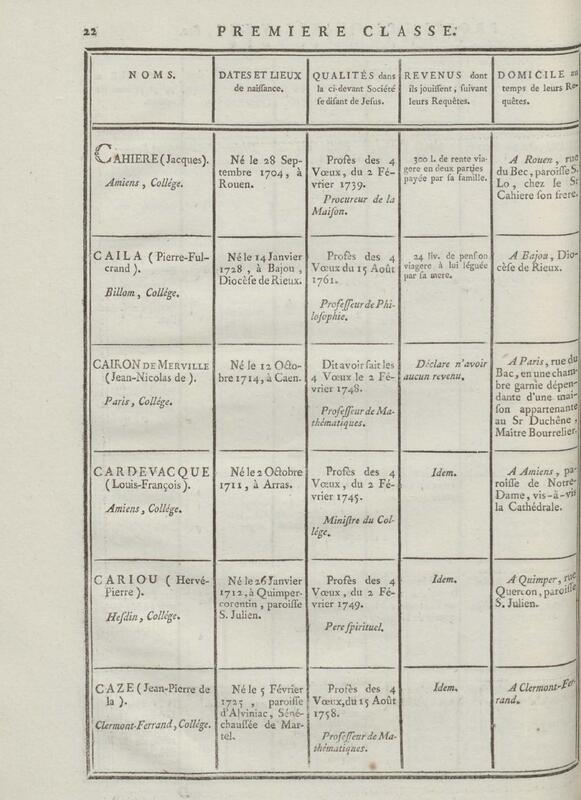 22 PREMIERE CLASSE.
NOMS.
DATES ET LIEUX
de naissance.
QUALITÉS dans
la ci-devant Société
se disant de Jesus.
REVENUS dont
ils jouissent, suivant
leurs Requêtes.
DOMICILE au
temps de leurs Re-
quêtes.
CAHIERE (Jacques).
Amiens, Collége.
Né le 28 Sep-
tembre 1704, à
Rouen.
Profès des 4
Vœux, du 2 Fé-
vrier 1739.
Procureur de la
Maison.
300 l. de rente via-
gere en deux parties
payée par sa famille.
A Rouen, rue
du Bec, paroisse S.
Lo, chez le Sr
Cahiere son frere.
CAILA (Pierre-Ful-
crand).
Billom, Collége.
Né le 14 Janvier
1728, à Bajou,
Diocèse de Rieux.
Profès des 4
Vœux du 15 Août
1761.
Professeur de Phi-
losophie.
24 liv. de pension
viagere à lui léguée
par sa mere.
A Bajou, Dio-
cèse de Rieux.
CAIRON DE MERVILLE
(Jean-Nicolas de).
Paris, Collége.
Né le 12 Octo-
bre 1714, à Caen.
Dit avoir fait les
4 Vœux le 2 Fé-
vrier 1748.
Professeur de Ma-
thématiques.
Déclare n'avoir
aucun revenu.
A Paris, rue du
Bac, en une cham-
bre garnie dépen-
dante d'une mai-
son appartenante
au Sr Duchêne,
Maître Bourrelier.
CARDEVACQUE
(Louis-François).
Amiens, Collége.
Né le 2 Octobre
1711, à Arras.
Profès des 4
Vœux, du 2 Fé-
vrier 1745.
Ministre du Col-
lége.
Idem.
A Amiens, pa-
roisse de Notre-
Dame, vis-à-vis
la Cathédrale.
CARIOU (Hervé-
Pierre).
Hesdin, Collége.
Né le 26 Janvier
1712, à Quimper-
corentin, paroisse
S. Julien.
Profès des 4
Vœux, du 2 Fé-
vrier 1749.
Pere spirituel.
Idem.
A Quimper, rue
Quercon, paroisse
S. Julien.
CAZE (Jean-Pierre de
la).
Clermont-Ferrand, Collége.
Né le 5 Février
1725, paroisse
d'Alviniac, Séné-
chaussée de Mar-
tel.
Profès des 4
Vœux, du 15 Août
1758.
Professeur de Ma-
thématiques.
Idem.
A Clermont-Fer-
rand.